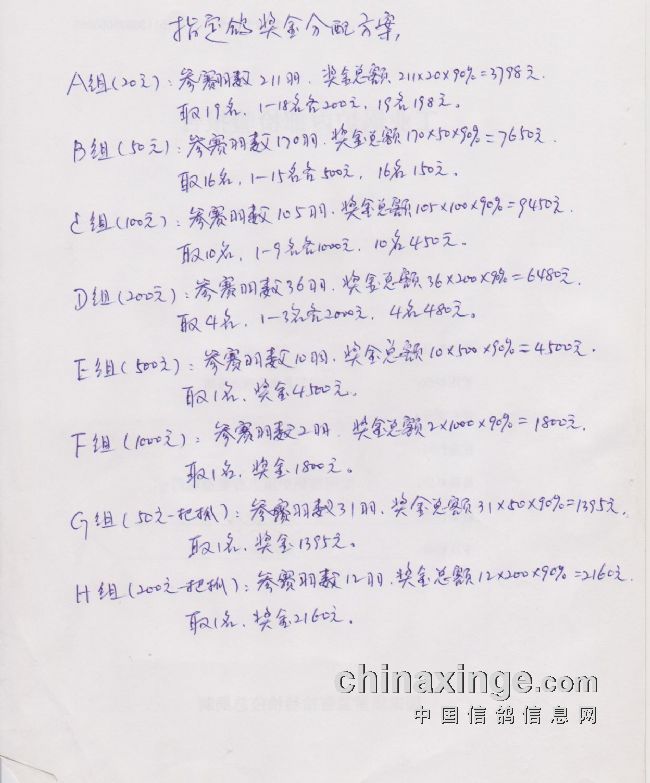 指定鸽奖金分配方案,
A组(20元):参赛羽数211羽.奖金总额211×20×90%=3798元.
取19名,1-18名各200元,19名198元。
B组(50元):参赛羽数170羽.奖金总额170×50×90%=7650元.
取16名,1-15名各500元,16名150元。
C组(100元):参赛羽数105羽.奖金总额105×100×90%=9450元.
取10名,1-9名各1000元,10名450元。
D组(200元):参赛羽数36羽.奖金总额36×200×90%=6480元.
取4名,1-3名各2000元,4名480元。
E组(500元):参赛羽数10羽.奖金总额10×500×90%=4500元.
取1名,奖金4500元。
F组(1000元):参赛羽数2羽.奖金总额2×1000×90%=1800元.
取1名,奖金1800元。
G组(50元一把抓):参赛羽数31羽.奖金总额31×50×90%=1395元.
取1名,奖金1395元。
H组(200元一把抓):参赛羽数12羽.奖金总额12×200×90%=2160元.
取1名,奖金2160元。
chinaxinge.com
中国信鸽信息网